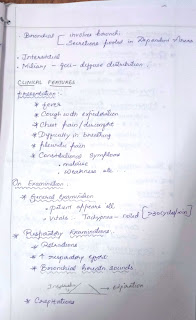 • Bronchial [ involves bronchi
Secretions pooled in Dependent
• Interstitial
• Miliary -
CLINICAL FEATURES
Presentation:-
* fever
* Cough with expectoration
* Chest pain / discomfort
* Difficulty in breathing
* Pleuritic pain
* Constitutional symptoms
• malaise
• weakness etc
On Examination
* General Examination
• patient appears ill
• Vitals - Tachypnea - raised [>30cycles/min]
* Respiratory Examination:
* Retractions
* ↑ respiratory effort
* Bronchial breath sounds
expiration
* Crepitations